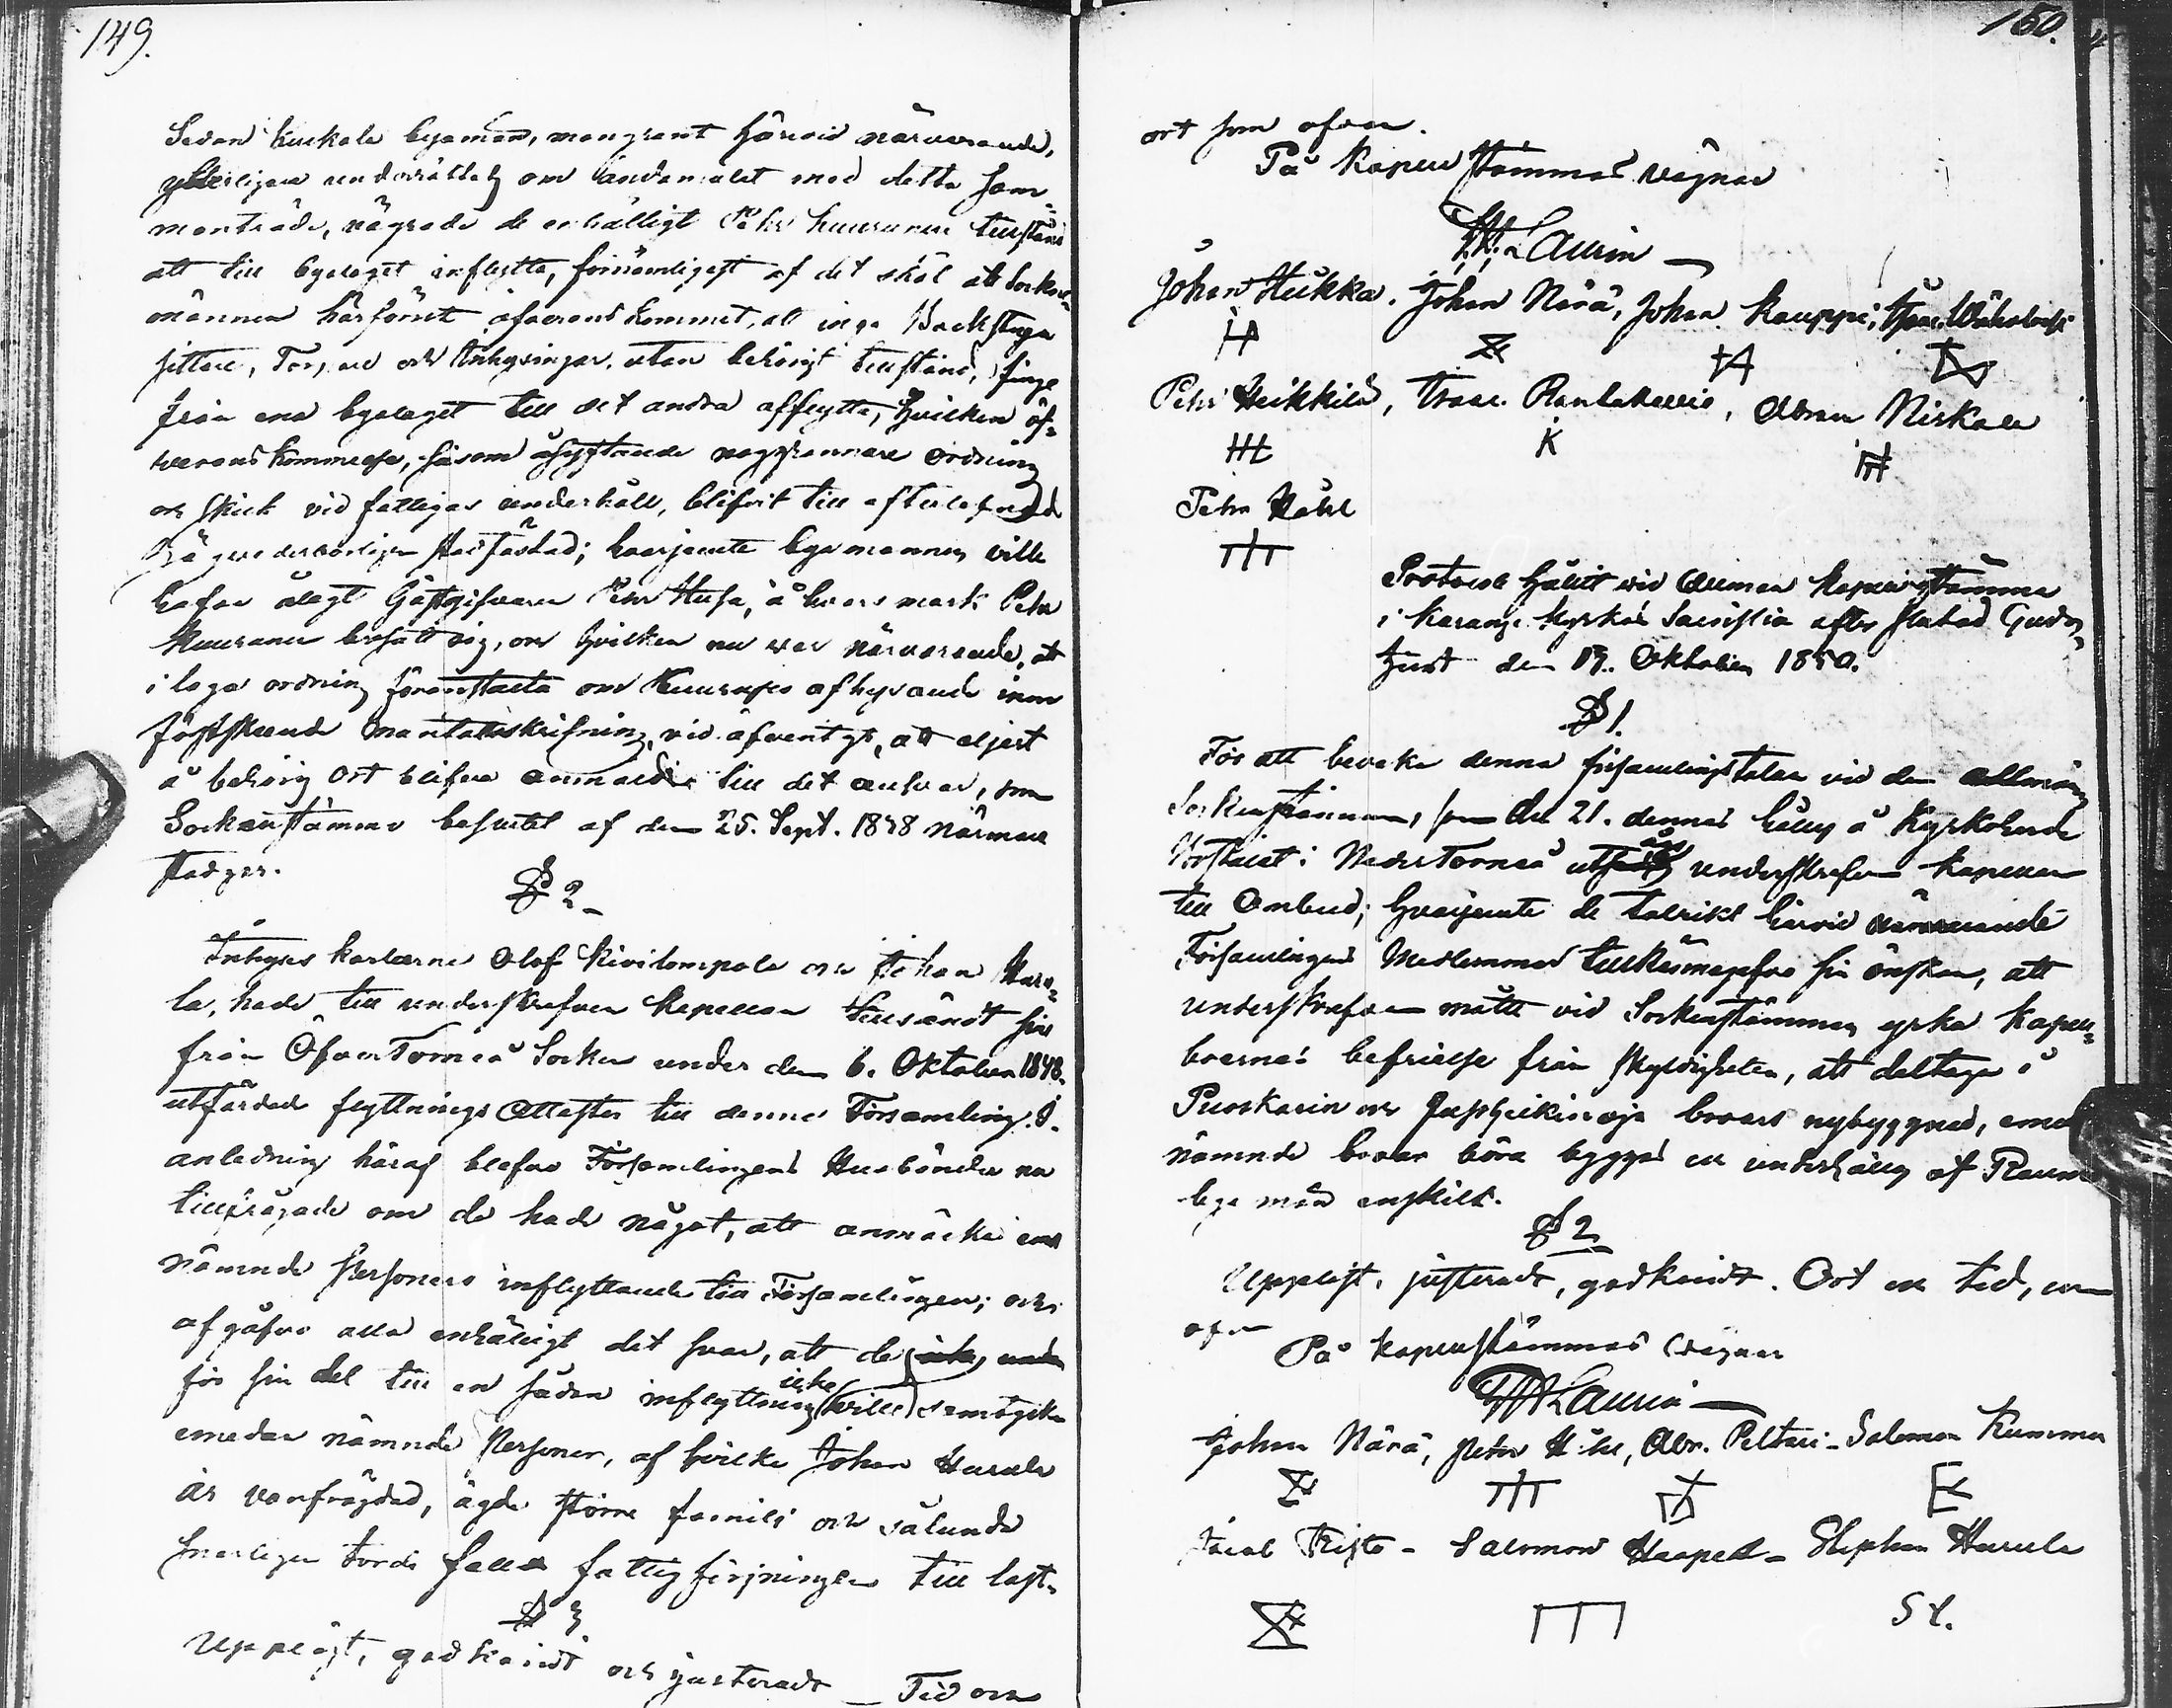 149.
Sedan Kuckola byaman, mangrant härvid närvarande,
ytterligare underrättats om ändamålet med detta sam=
manträde, vägrade de enhälligt Pehr Kuuranen tillstånd
att till byalaget inflytta, förnämligast af det skäl att Socken=
männen härförut öfverenskommit, att inga Backstugu
sittare, Torpare och Inhysingar, utan behörigt tillstånd, finge
från ena byalaget till det andra afflytta, hvilken öf=
verenskommelse, såsom åsyftande noggrannare ordning
och skick vid fattigas underhåll, blifvit till efterlefnad
stadfästad; hvarjemte byamännen ville
hafva ålagt Gästgifvaren Pehr Husa, å hvars mark Pehr
Kuuranen bosatt sig, och hvilken nu var närvarande, att
i laga ordning föranstalta om Kuuranens afhysande innan
förstskeende Mantalsskrifning, vid äfventyr, att eljest
å behörig Ort blifva anmäld till det ansvar, som
Sockenstämmo beslutet af den 25. Sept. 1848 närmare
stadgar.
§ 2
Inhyses karlarne Olof Kivilompolo och Johan Huru=
la, hade till underskrefven Kapellan tillsändt sine
från ÖfverTorneå Socken under den 6. Oktober 1848.
utfärdade flyttnings Attester till denna Församling. I
anledning häraf blefvo Församlingens Husbönder nu
tillfrågade om de hade något, att anmärka emot
nämnde Personers inflyttande till Församlingen; och
afgåfvo alla enhälligt det svar, att de icke
för sin del till en sådan inflyttning icke ville samtycka
emedan nämnde Personer, af hvilka Johan Hurula
är vanfrägdad, ägde större familj och sålunda
snarligen torde falla fattigförsörjningen till last.
§ 3
Uppläst, godkändt och justeradt _ Tid och
150.
ort som ofvan.
På Kapellstämmans vägnar
Laurin
Johan Hukka. Johan Närä, Johan Kauppi, Isac
Pehr Heikkilä, Isac Rantakallio, Abram Niskala
Pehr Håhl
Protocoll hållit vid Allmän Kapellstämma
i Karungi Kyrkas Sacristia efter slutad Guds=
tjenst den 19. Oktober 1850.
§ 1.
För att bevaka denna församlings talan vid den allmänna
Sockenstämman, som den 21. dennes hålles å Kyrkoherde
Bostället i NederTorneå utsågs underskrefven Kapellan
till Ombud; hvarjemte de talrikt härvid närvarande
Församlingens Medlemmar tillkännagåfvo sin önskan, att
underskrefven måtte vid Sockenstämman yrka Kapell=
boernas befrielse från skyldigheten, att deltaga i
Puoskarin och broars nybyggnad, emedan
nämnde broar böra byggas och underhållas af Raumo
bya män enskildt.
§ 2
Uppläst, justeradt, godkändt. Ort och tid, som
ofvan
På Kapellstämmans vägnar
Laurin
Johan Närä, Pehr Håhl, Abr. Peltari - Salomon Kumma
Jacob Risto - Salomon Haapal - Stephan Hurula
St.